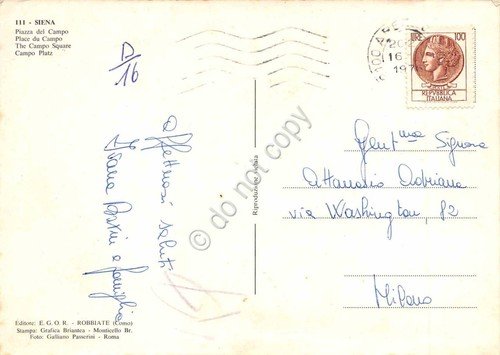 111 - SIENA
Piazza del Campo
Place du Campo
The Campo Square
Campo Platz
D/16
affettuosi saluti
e famiglia
Editore: E. G. O. R. - ROBBIATE (Como)
Stampa: Grafica Briantea - Monticello Br.
Foto: Galliano Passerini - Roma
Riproduzione vietata
20
16
197
LIRE 100
REPVBBLICA
ITALIANA
Gent.ma Signora
Attanasio Adriana
via Washington, 82
Milano
do not copy